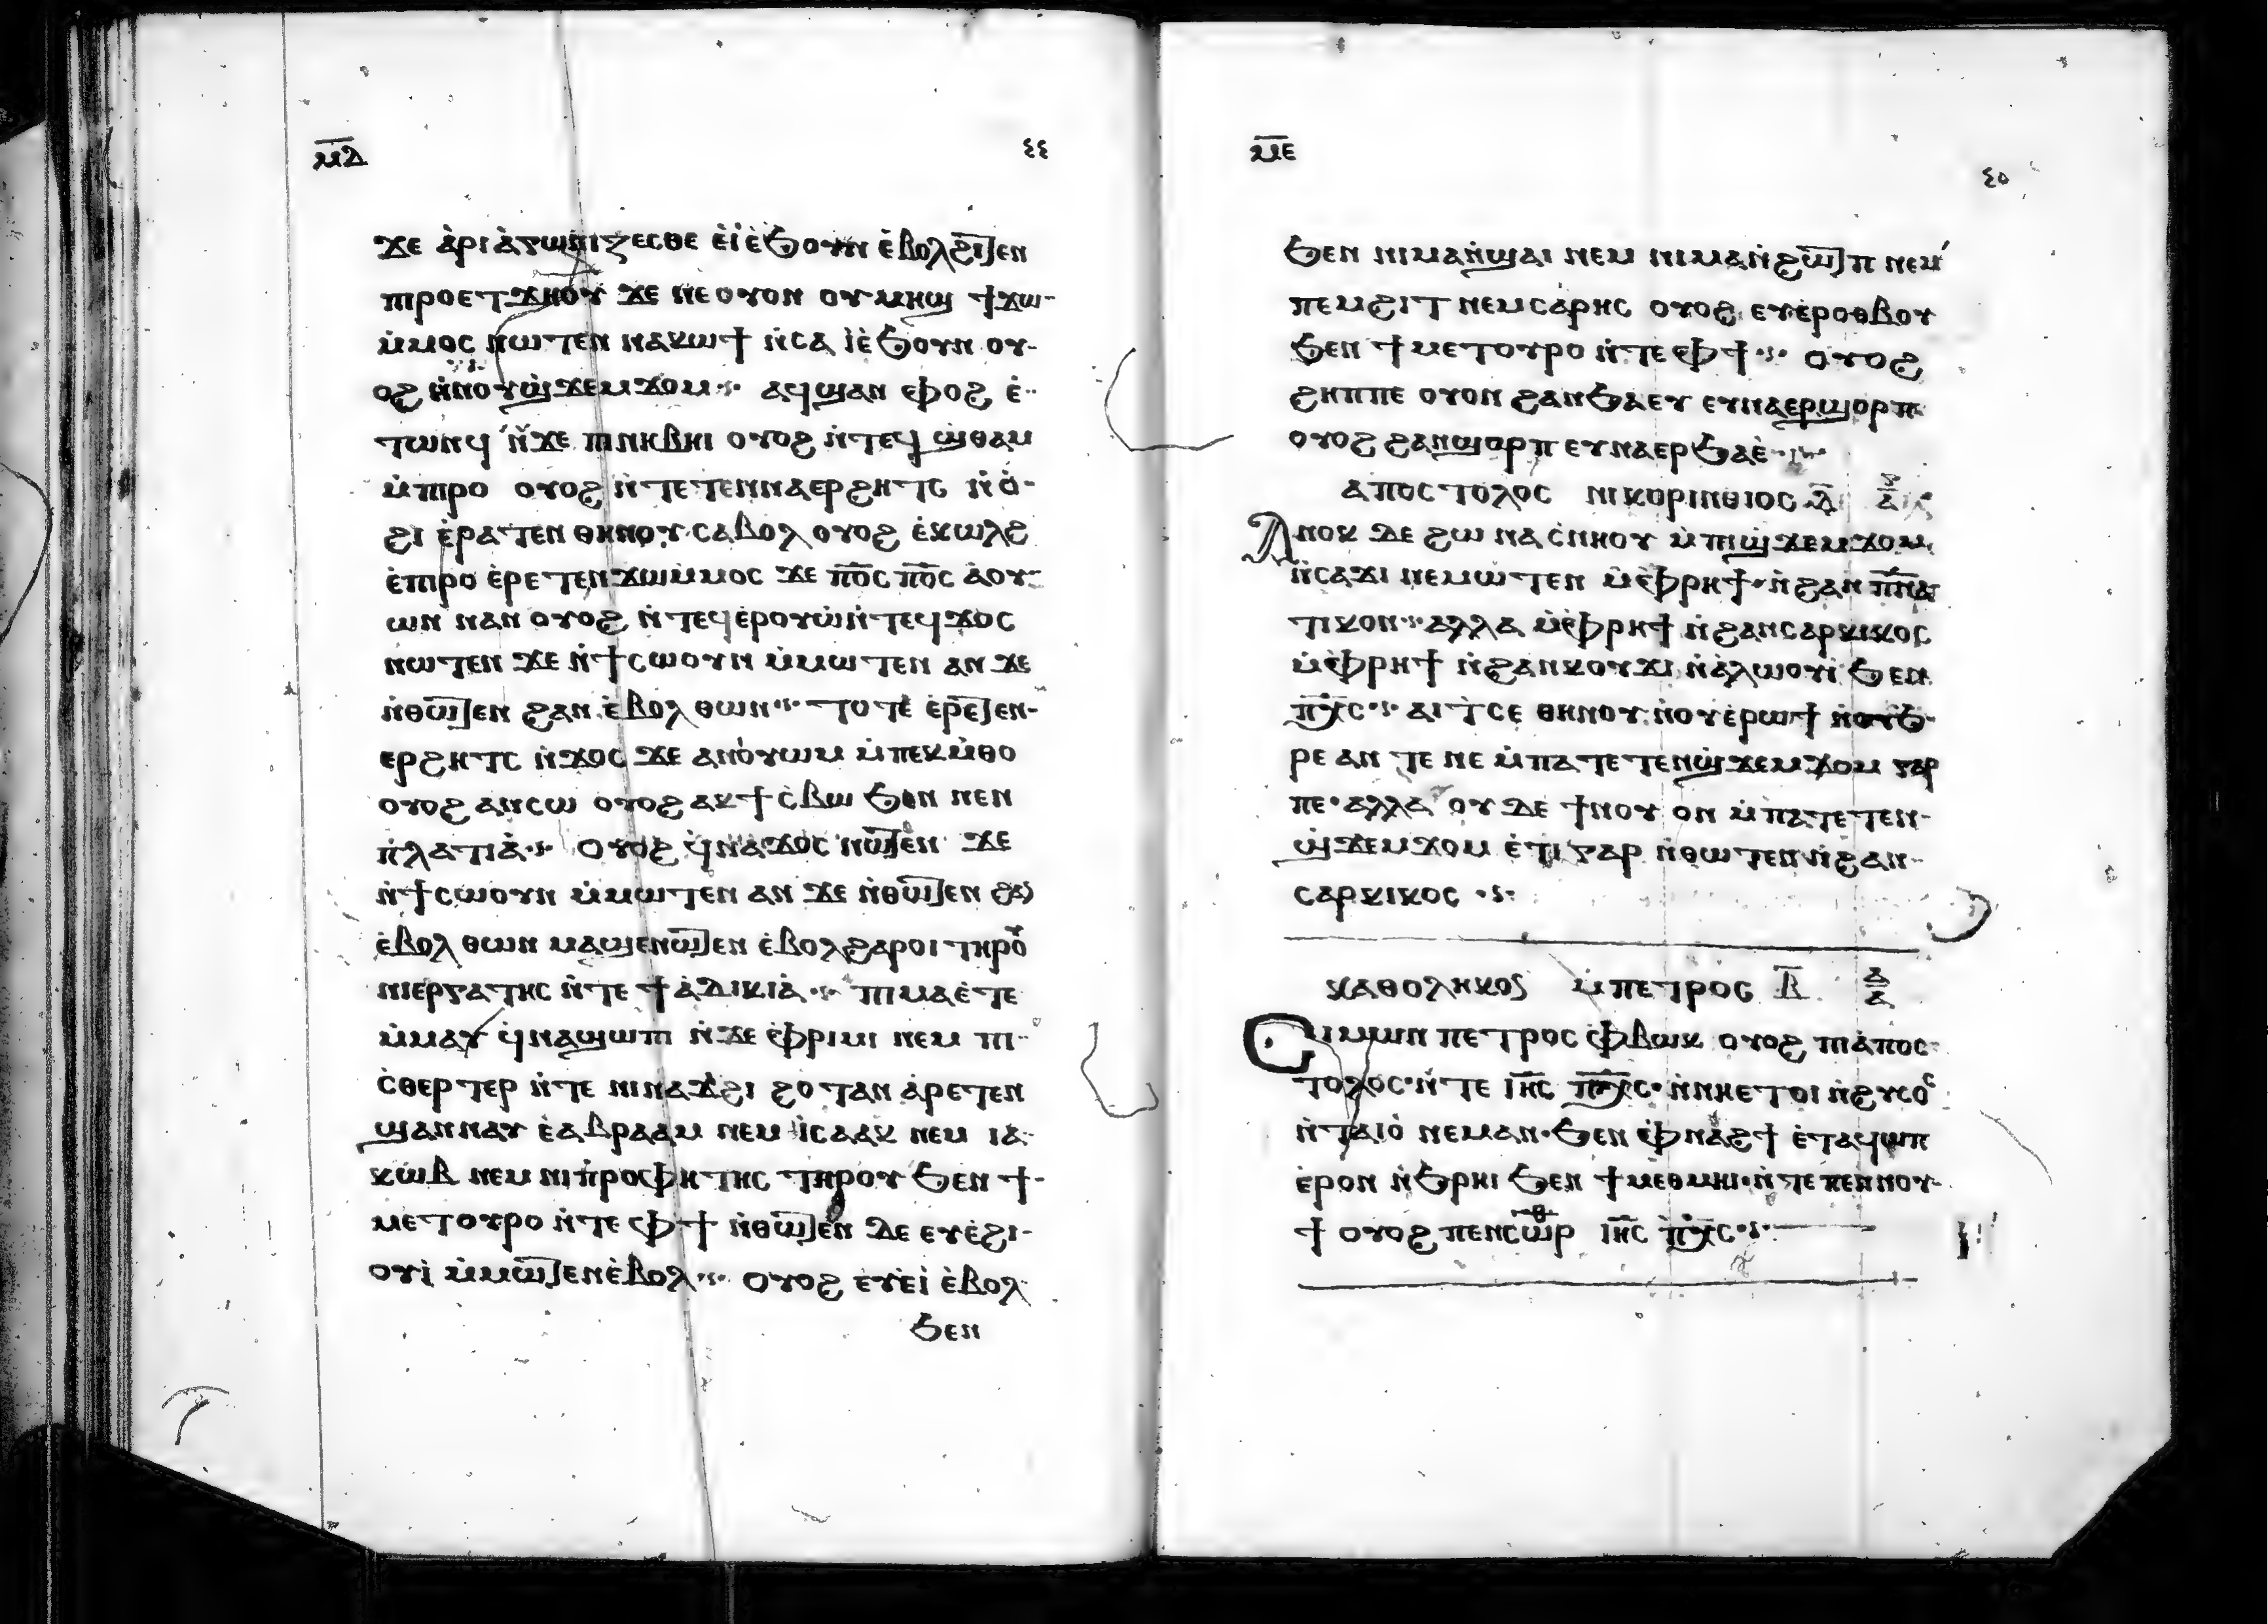 ⲙ̅ⲇ̅ ٤٤
ϫⲉ ⲁ̀ⲣⲓⲁ̀ⲅⲱⲛⲓⲍⲉⲥⲑⲉ ⲉ̀ⲓ̀ⲉ̀ϧⲟⲩⲛ ⲉ̀ⲃⲟⲗϩⲓⲧⲉⲛ
ⲡⲓⲣⲟⲉⲧϫⲏⲟⲩ ϫⲉ ⲛⲉⲟⲩⲟⲛ ⲟⲩⲙⲏϣ ϯϫⲱ-
ⲙ̀ⲙⲟⲥ ⲛⲱⲧⲉⲛ ⲛⲁⲕⲱϯ ⲛ̀ⲥⲁ ⲓ̀ⲉ̀ϧⲟⲩⲛ ⲟⲩ-
ⲟϩ ⲛ̀ⲛⲟⲩϣ̀ϫⲉⲙϫⲟⲙ⳾ ⲁϥϣⲁⲛ ⲫⲟϩ ⲉ̀-
ⲧⲱⲛϥ ⲛ̀ϫⲉ ⲡⲓⲛⲏⲃⲏⲓ ⲟⲩⲟϩ ⲛ̀ⲧⲉϥ ϣ̀ⲑⲁⲙ
ⲙ̀ⲡⲓⲣⲟ ⲟⲩⲟϩ ⲛ̀ⲧⲉⲧⲉⲛⲛⲁⲉⲣϩⲏⲧⲥ ⲛ̀ⲟ̀-
ϩⲓ ⲉ̀ⲣⲁⲧⲉⲛ ⲑⲏⲛⲟⲩ ⲥⲁⲃⲟⲗ ⲟⲩⲟϩ ⲉ̀ⲕⲱⲗϩ
ⲉ̀ⲡⲓⲣⲟ ⲉ̀ⲣⲉⲧⲉⲛϫⲱⲙ̀ⲙⲟⲥ ϫⲉ ⲡ̅ⲟ̅ⲥ ⲡ̅ⲟ̅ⲥ ⲁ̀ⲟⲩ-
ⲱⲛ ⲛⲁⲛ ⲟⲩⲟϩ ⲛ̀ⲧⲉϥⲉⲣⲟⲩⲱ̀ⲛ̀ⲧⲉϥϫⲟⲥ
ⲛⲱⲧⲉⲛ ϫⲉ ⲛ̀ϯⲥⲱⲟⲩⲛ ⲙ̀ⲙⲱⲧⲉⲛ ⲁⲛ ϫⲉ
ⲛ̀ⲑⲱⲧⲉⲛ ϩⲁⲛ ⲉ̀ⲃⲟⲗ ⲑⲱⲛ⳾ ⲧⲟⲧⲉ ⲉ̀ⲣⲉⲧⲉⲛ-
ⲉⲣϩⲏⲧⲥ ⲛ̀ϫⲟⲥ ϫⲉ ⲁⲛⲟ̀ⲩⲱⲙ ⲙ̀ⲡⲉⲕⲙ̀ⲑⲟ
ⲟⲩⲟϩ ⲁⲛⲥⲱ ⲟⲩⲟϩ ⲁⲕϯⲥ̀ⲃⲱ ϧⲉⲛ ⲛⲉⲛ
ⲡ̀ⲗⲁⲧⲓⲁ̀⳾ ⲟⲩⲟϩ ϥ̀ⲛⲁϫⲟⲥ ⲛⲱⲧⲉⲛ ϫⲉ
ⲛ̀ϯⲥⲱⲟⲩⲛ ⲙ̀ⲙⲱⲧⲉⲛ ⲁⲛ ϫⲉ ⲛ̀ⲑⲱⲧⲉⲛ ϩⲁⲛ
ⲉ̀ⲃⲟⲗ ⲑⲱⲛ ⲙⲁϣⲉⲛⲱⲧⲉⲛ ⲉ̀ⲃⲟⲗϩⲁⲣⲟⲓ ⲧⲏⲣⲟⲩ
ⲛⲓⲉⲣⲅⲁⲧⲏⲥ ⲛ̀ⲧⲉ ϯⲁ̀ⲇⲓⲕⲓⲁ̀⳾ ⲡⲓⲙⲁⲉ̀ⲧⲉ
ⲙ̀ⲙⲁⲩ ϥ̀ⲛⲁϣⲱⲡⲓ ⲛ̀ϫⲉ ⲫ̀ⲣⲓⲙⲓ ⲛⲉⲙ ⲡⲓ-
ⲥ̀ⲑⲉⲣⲧⲉⲣ ⲛ̀ⲧⲉ ⲛⲓⲛⲁϫϩⲓ ϩⲟⲧⲁⲛ ⲁ̀ⲣⲉⲧⲉⲛ
ϣⲁⲛⲛⲁⲩ ⲉ̀ⲁⲃⲣⲁⲁⲙ ⲛⲉⲙ ⲓ̀ⲥⲁⲁⲕ ⲛⲉⲙ ⲓⲁ-
ⲕⲱⲃ ⲛⲉⲙ ⲛⲓⲡ̀ⲣⲟⲫⲏⲧⲏⲥ ⲧⲏⲣⲟⲩ ϧⲉⲛ ϯ-
ⲙⲉⲧⲟⲩⲣⲟ ⲛ̀ⲧⲉ ⲫϯ ⲛ̀ⲑⲱⲧⲉⲛ ⲇⲉ ⲉⲩⲉ̀ϩⲓ-
ⲟⲩⲓ̀ ⲙ̀ⲙⲱⲧⲉⲛⲉ̀ⲃⲟⲗ⳾ ⲟⲩⲟϩ ⲉⲩⲉ̀ⲓ̀ ⲉ̀ⲃⲟⲗ
ϧⲉⲛ
ⲙ̅ⲉ̅ ٤٥
ϧⲉⲛ ⲛⲓⲙⲁⲛ̀ϣⲁⲓ ⲛⲉⲙ ⲛⲓⲙⲁⲛ̀ϩⲱⲧⲡ ⲛⲉⲙ
ⲡⲉⲙϩⲓⲧ ⲛⲉⲙⲥⲁⲣⲏⲥ ⲟⲩⲟϩ ⲉⲩⲉ̀ⲣⲟⲑⲃⲟⲩ
ϧⲉⲛ ϯⲙⲉⲧⲟⲩⲣⲟ ⲛ̀ⲧⲉ ⲫϯ⳾ ⲟⲩⲟϩ
ϩⲏⲡⲡⲉ ⲟⲩⲟⲛ ϩⲁⲛϧⲁⲉⲩ ⲉⲩⲛⲁⲉⲣϣⲟⲣⲡ
ⲟⲩⲟϩ ϩⲁⲛϣⲟⲣⲡ ⲉⲩⲛⲁⲉⲣϧⲁⲉ̀
ⲁⲡⲟⲥⲧⲟⲗⲟⲥ ⲛⲓⲕⲟⲣⲓⲛⲑⲓⲟⲥ ⲁ̅
Ⲁⲛⲟⲕ ⲇⲉ ϩⲱ ⲛⲁⲥ̀ⲛⲏⲟⲩ ⲙ̀ⲡⲓϣ̀ϫⲉⲙϫⲟⲙ
ⲛ̀ⲥⲁϫⲓ ⲛⲉⲙⲱⲧⲉⲛ ⲙ̀ⲫ̀ⲣⲏϯ ⲛ̀ϩⲁⲛ ⲡ̅ⲛ̅ⲁ̅
ⲧⲓⲕⲟⲛ⳾ ⲁⲗⲗⲁ ⲙ̀ⲫ̀ⲣⲏϯ ⲛ̀ϩⲁⲛⲥⲁⲣⲕⲓⲕⲟⲥ
ⲙ̀ⲫ̀ⲣⲏϯ ⲛ̀ϩⲁⲛⲕⲟⲩϫⲓ ⲛ̀ⲁ̀ⲗⲱⲟⲩⲓ̀ ϧⲉⲛ
ⲡ̅ⲭ̅ⲥ⳾ ⲁⲓⲧ̀ⲥⲉ ⲑⲏⲛⲟⲩ ⲛ̀ⲟⲩⲉ̀ⲣⲱϯ ⲛ̀ⲟⲩϧ-
ⲣⲉ ⲁⲛ ⲧⲉ ⲛⲉ ⲙ̀ⲡⲁⲧⲉⲧⲉⲛϣ̀ϫⲉⲙϫⲟⲙ ⲅⲁⲣ
ⲡⲉ ⲁⲗⲗⲁ ⲟⲩ ⲇⲉ ϯⲛⲟⲩ ⲟⲛ ⲙ̀ⲡⲁⲧⲉⲧⲉⲛ-
ϣ̀ϫⲉⲙϫⲟⲙ ⲉ̀ⲧⲓ ⲅⲁⲣ ⲛ̀ⲑⲱⲧⲉⲛ ⲛ̀ϩⲁⲛ-
ⲥⲁⲣⲕⲓⲕⲟⲥ ⳾
ⲕⲁⲑⲟⲗⲏⲕⲟⲥ ⲙ̀ⲡⲉⲧⲣⲟⲥ ⲃ̅ ⲁ̅ ⲁ
Ⲥⲓⲙⲱⲛ ⲡⲉⲧⲣⲟⲥ ⲫ̀ⲃⲱⲕ ⲟⲩⲟϩ ⲡⲓⲁ̀ⲡⲟⲥ-
ⲧⲟⲗⲟⲥ ⲛ̀ⲧⲉ ⲓⲏ̅ⲥ ⲡⲭ̅ⲥ ⲛ̀ⲛⲏⲉⲧⲟⲓ ⲛ̀ϩⲩⲥⲟⲥ
ⲛ̀ⲧⲁⲓⲟ̀ ⲛⲉⲙⲁⲛ ϧⲉⲛ ⲫ̀ⲛⲁϩϯ ⲉ̀ⲧⲁϥϣⲡ
ⲉ̀ⲣⲟⲛ ⲛ̀ϧⲣⲏⲓ ϧⲉⲛ ϯⲙⲉⲑⲙⲏⲓ ⲛ̀ⲧⲉ ⲡⲉⲛⲛⲟⲩ-
ϯ ⲟⲩⲟϩ ⲡⲉⲛⲥⲱⲣ ⲓⲏ̅ⲥ ⲡⲭ̅ⲥ⳾